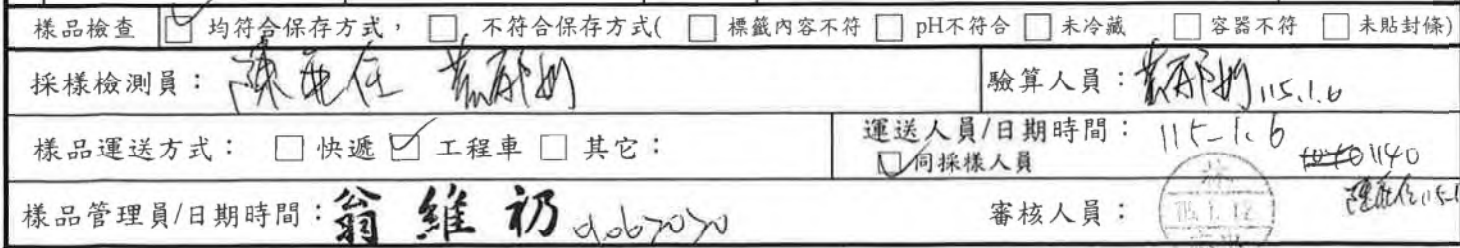 樣品檢查 ☑ 均符合保存方式, □ 不符合保存方式( □ 標籤內容不符 □ pH不符合 □ 未冷藏 □ 容器不符 □ 未貼封條)
採樣檢測員: 驗算人員: 115.1.6
樣品運送方式: □ 快遞 ☑ 工程車 □ 其它: 運送人員/日期時間: 115-1.6 1140
☑同採樣人員
樣品管理員/日期時間:翁維礽 審核人員: 115.1.12